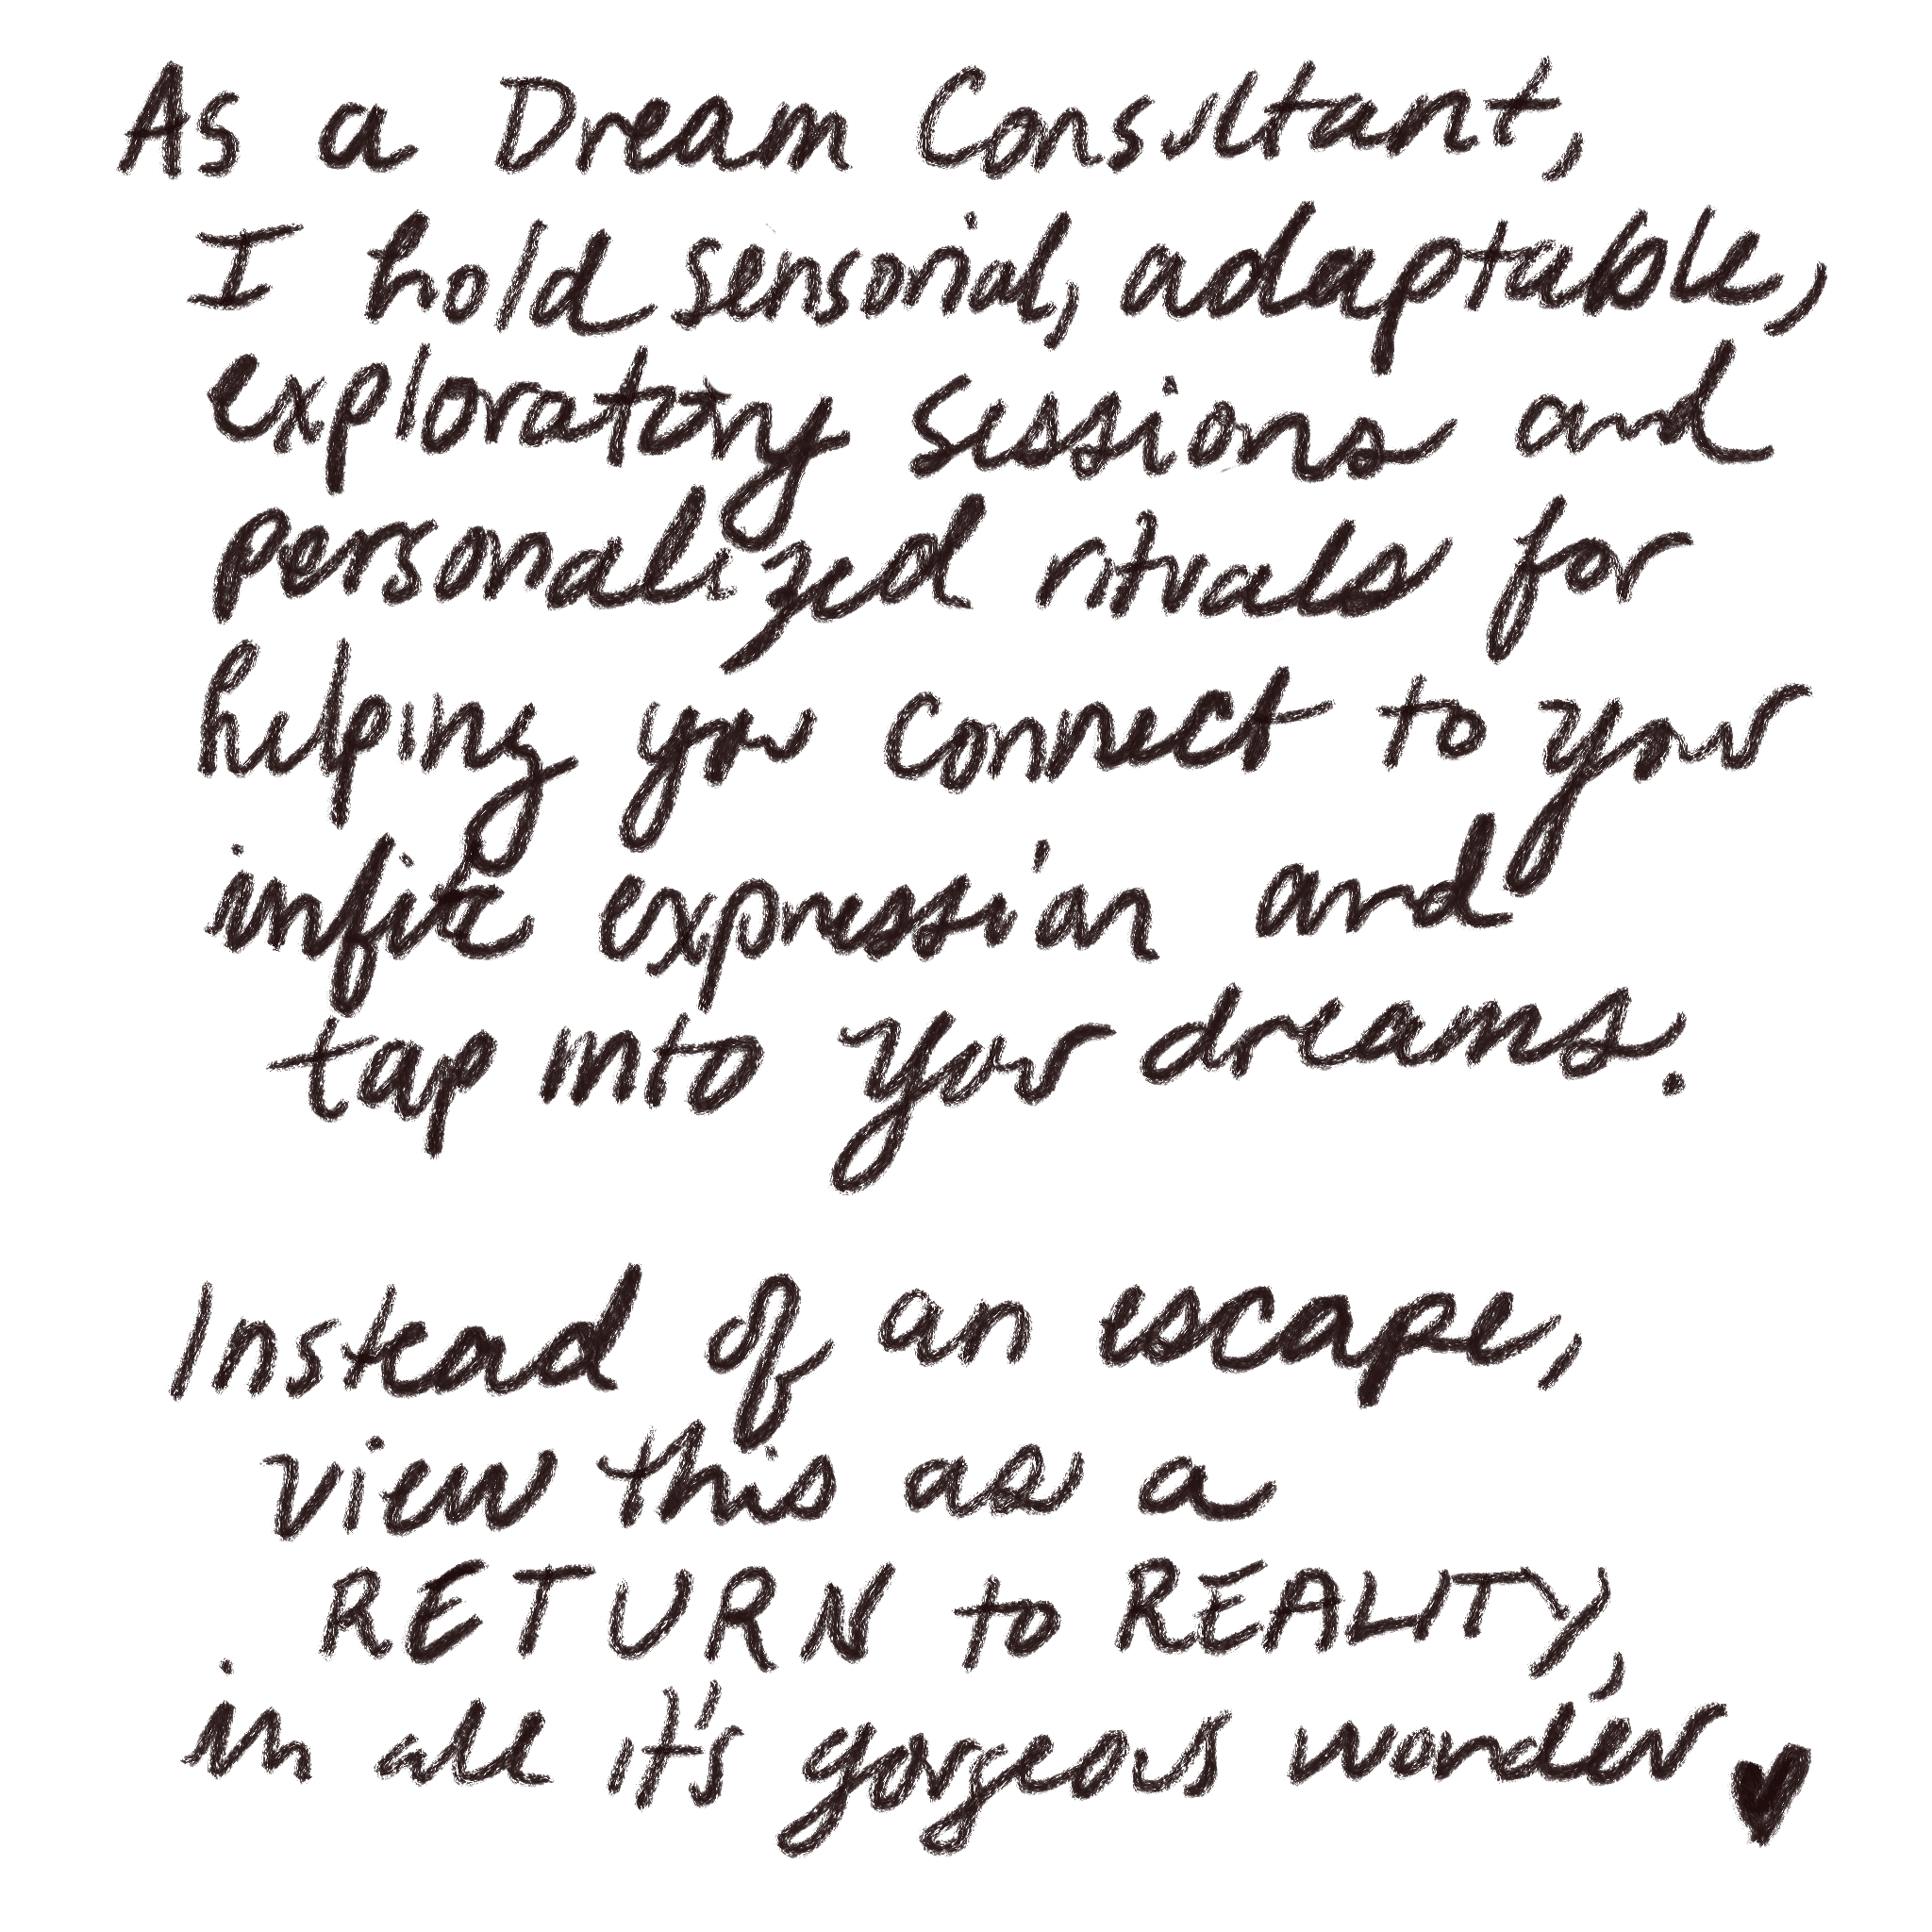 As a Dream Consultant,
I hold sensorial, adaptable,
exploratory sessions and
personalized rituals for
helping you connect to your
expression and
tap into your dreams.
Instead of an escape,
view this as a
RETURN to REALITY,
in all it's gorgeous wonder ♥